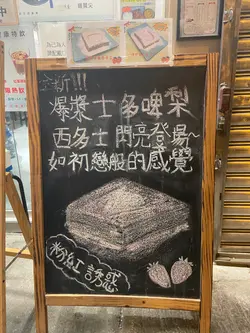 全新!!!
爆漿士多啤梨
西多士閃亮登場~
如初戀般的感覺
粉紅誘惑